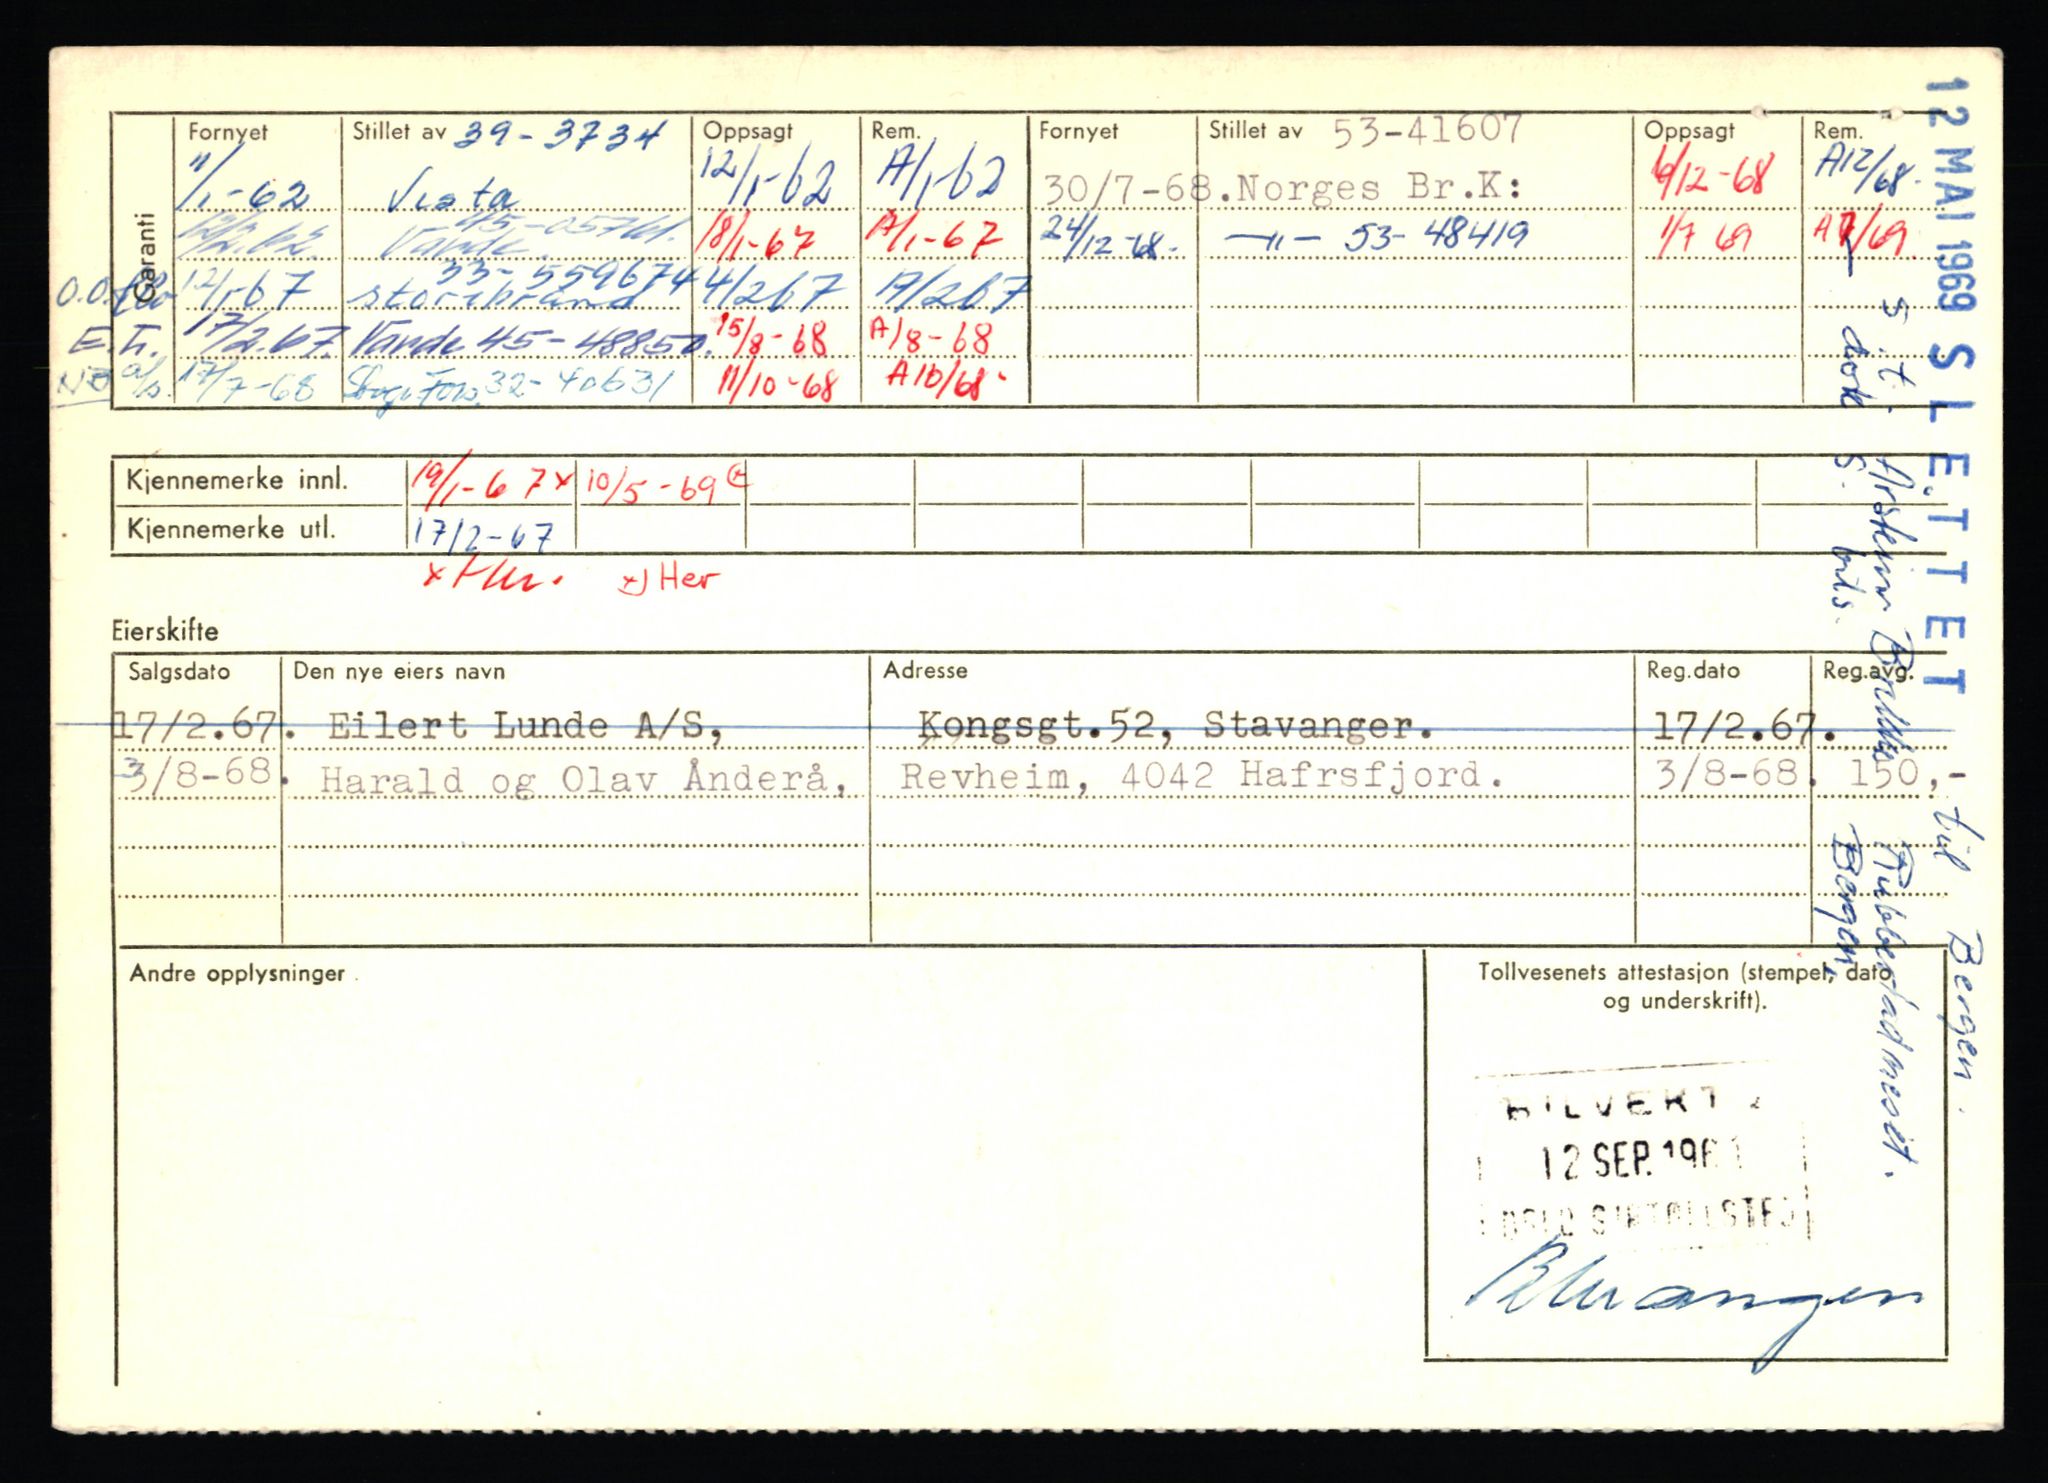 Garanti
Fornyet Stillet av 39-3734 Oppsagt Rem. Fornyet Stillet av 53-41607 Oppsagt Rem.
11/1-62 Vesta 12/1-62 A/1-62 30/7-68. Norges Br.K: 6/12-68 A12/68-
45-05761. 18/1-67 A/1-67 24/12-68- —"— 53-48419 1/7 69 A7/69.
12/1-67 Storebrand 33-559674 4/2 67 A/2 67
E.L. 17/2.67. Vande 45-48850. 15/8-68 A/8-68
NB 17/7-68 32-40631 11/10-68 A10/68-
Kjennemerke innl. 19/1-67 x 10/5-69
Kjennemerke utl. 17/2-67
x Her. x) Her
Eierskifte
Salgsdato Den nye eiers navn Adresse Reg.dato Reg.avg.
17/2.67. Eilert Lunde A/S, Kongsgt.52, Stavanger. 17/2.67.
3/8-68. Harald og Olav Ånderå, Revheim, 4042 Hafrsfjord. 3/8-68. 150,-
Andre opplysninger
Tollvesenets attestasjon (stempel, dato
og underskrift).
BILVERK
12 SEP. 1961
OSLO
12 MAI 1969 SLETTET
til Bergen.
Bergen,